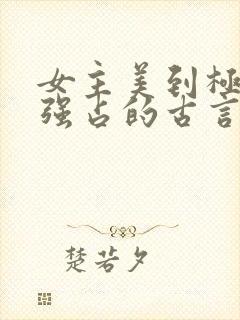 女主美到極
强占的古言
楚若夕